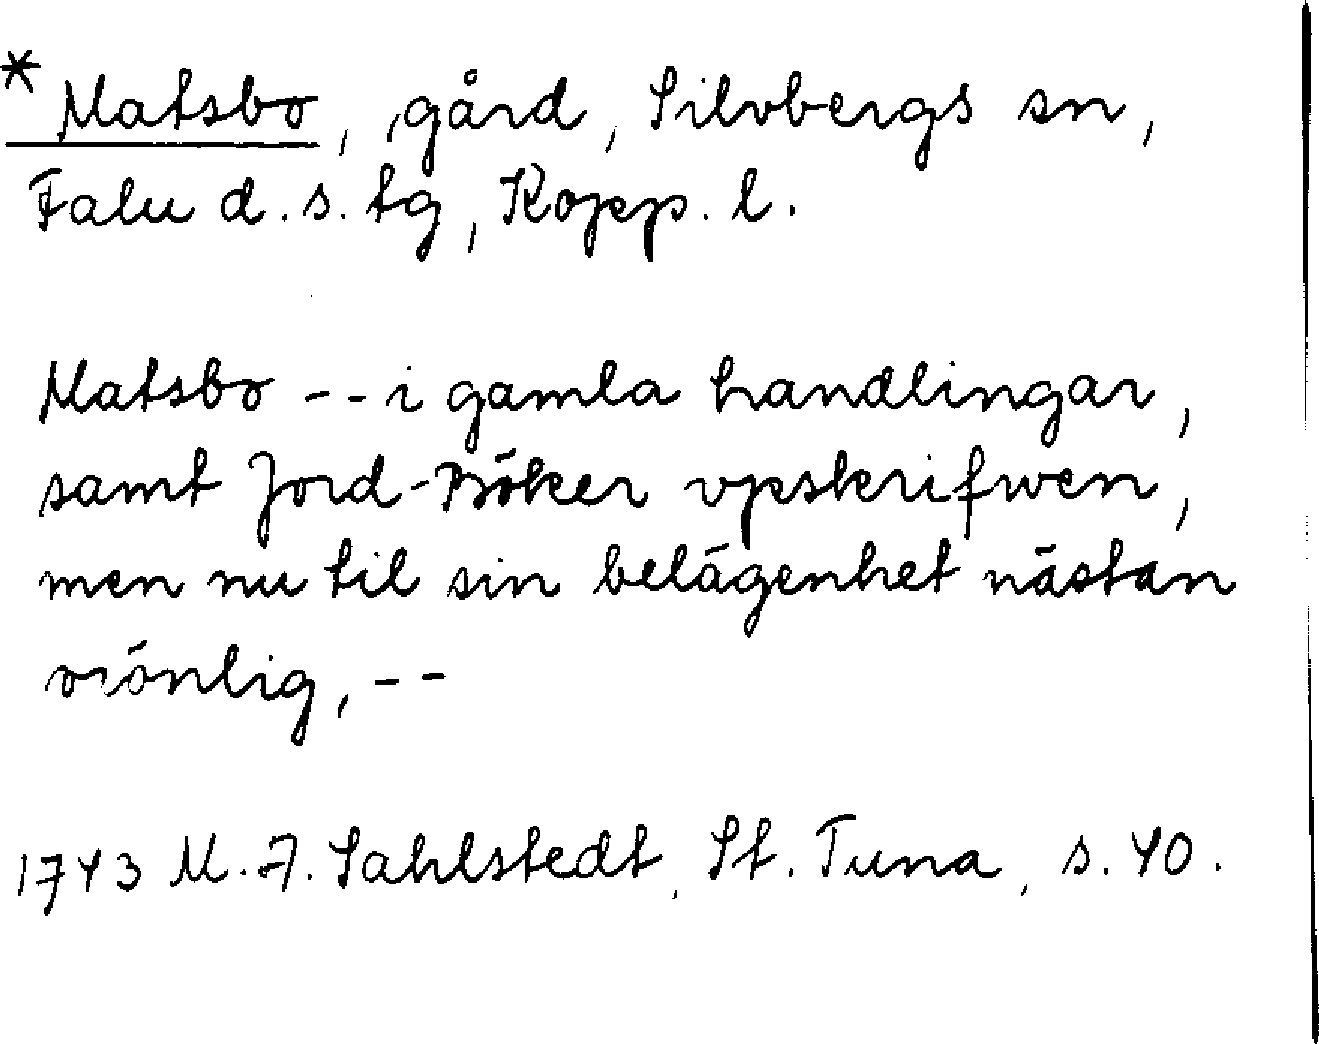 * Matsbo, gård, Silvbergs sn,
Falu d. s. tg, Kopp. l.
Matsbo -- i gamla handlingar,
samt Jord-Böker vpskrifwen,
men nu til sin belägenhet nästan
vrönlig, --
1743 M. A. Sahlstedt, St. Tuna, s. 40.